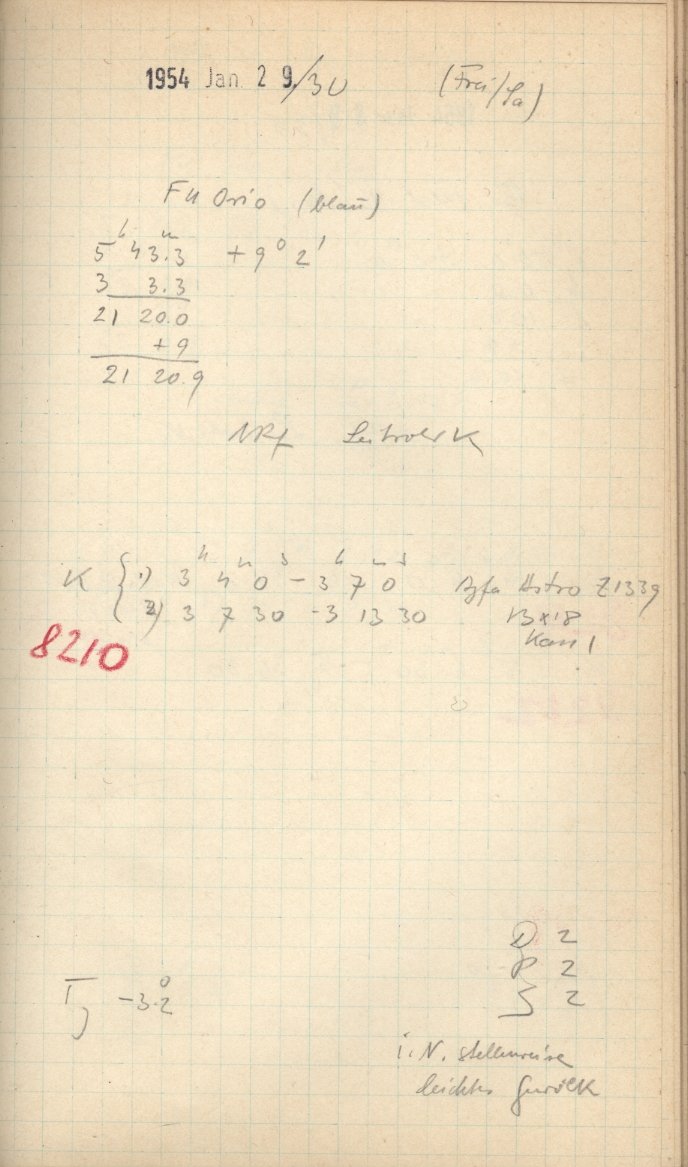 1954 Jan. 29./30 (Frei/Sa)
FU Orio (blau)
5h 43m.3 +9° 2'
3 3.3
21 20.0
+9
21 20.9
K { 1) 3h 4m 0s - 3h 7m 0s Agfa Astro Z1339
2) 3 7 30 - 3 13 30 13x18
Kass 1
8210
D 2
P 2
S 2
T, -3°.2
i. N. stellenweise
leichtes Gewölk